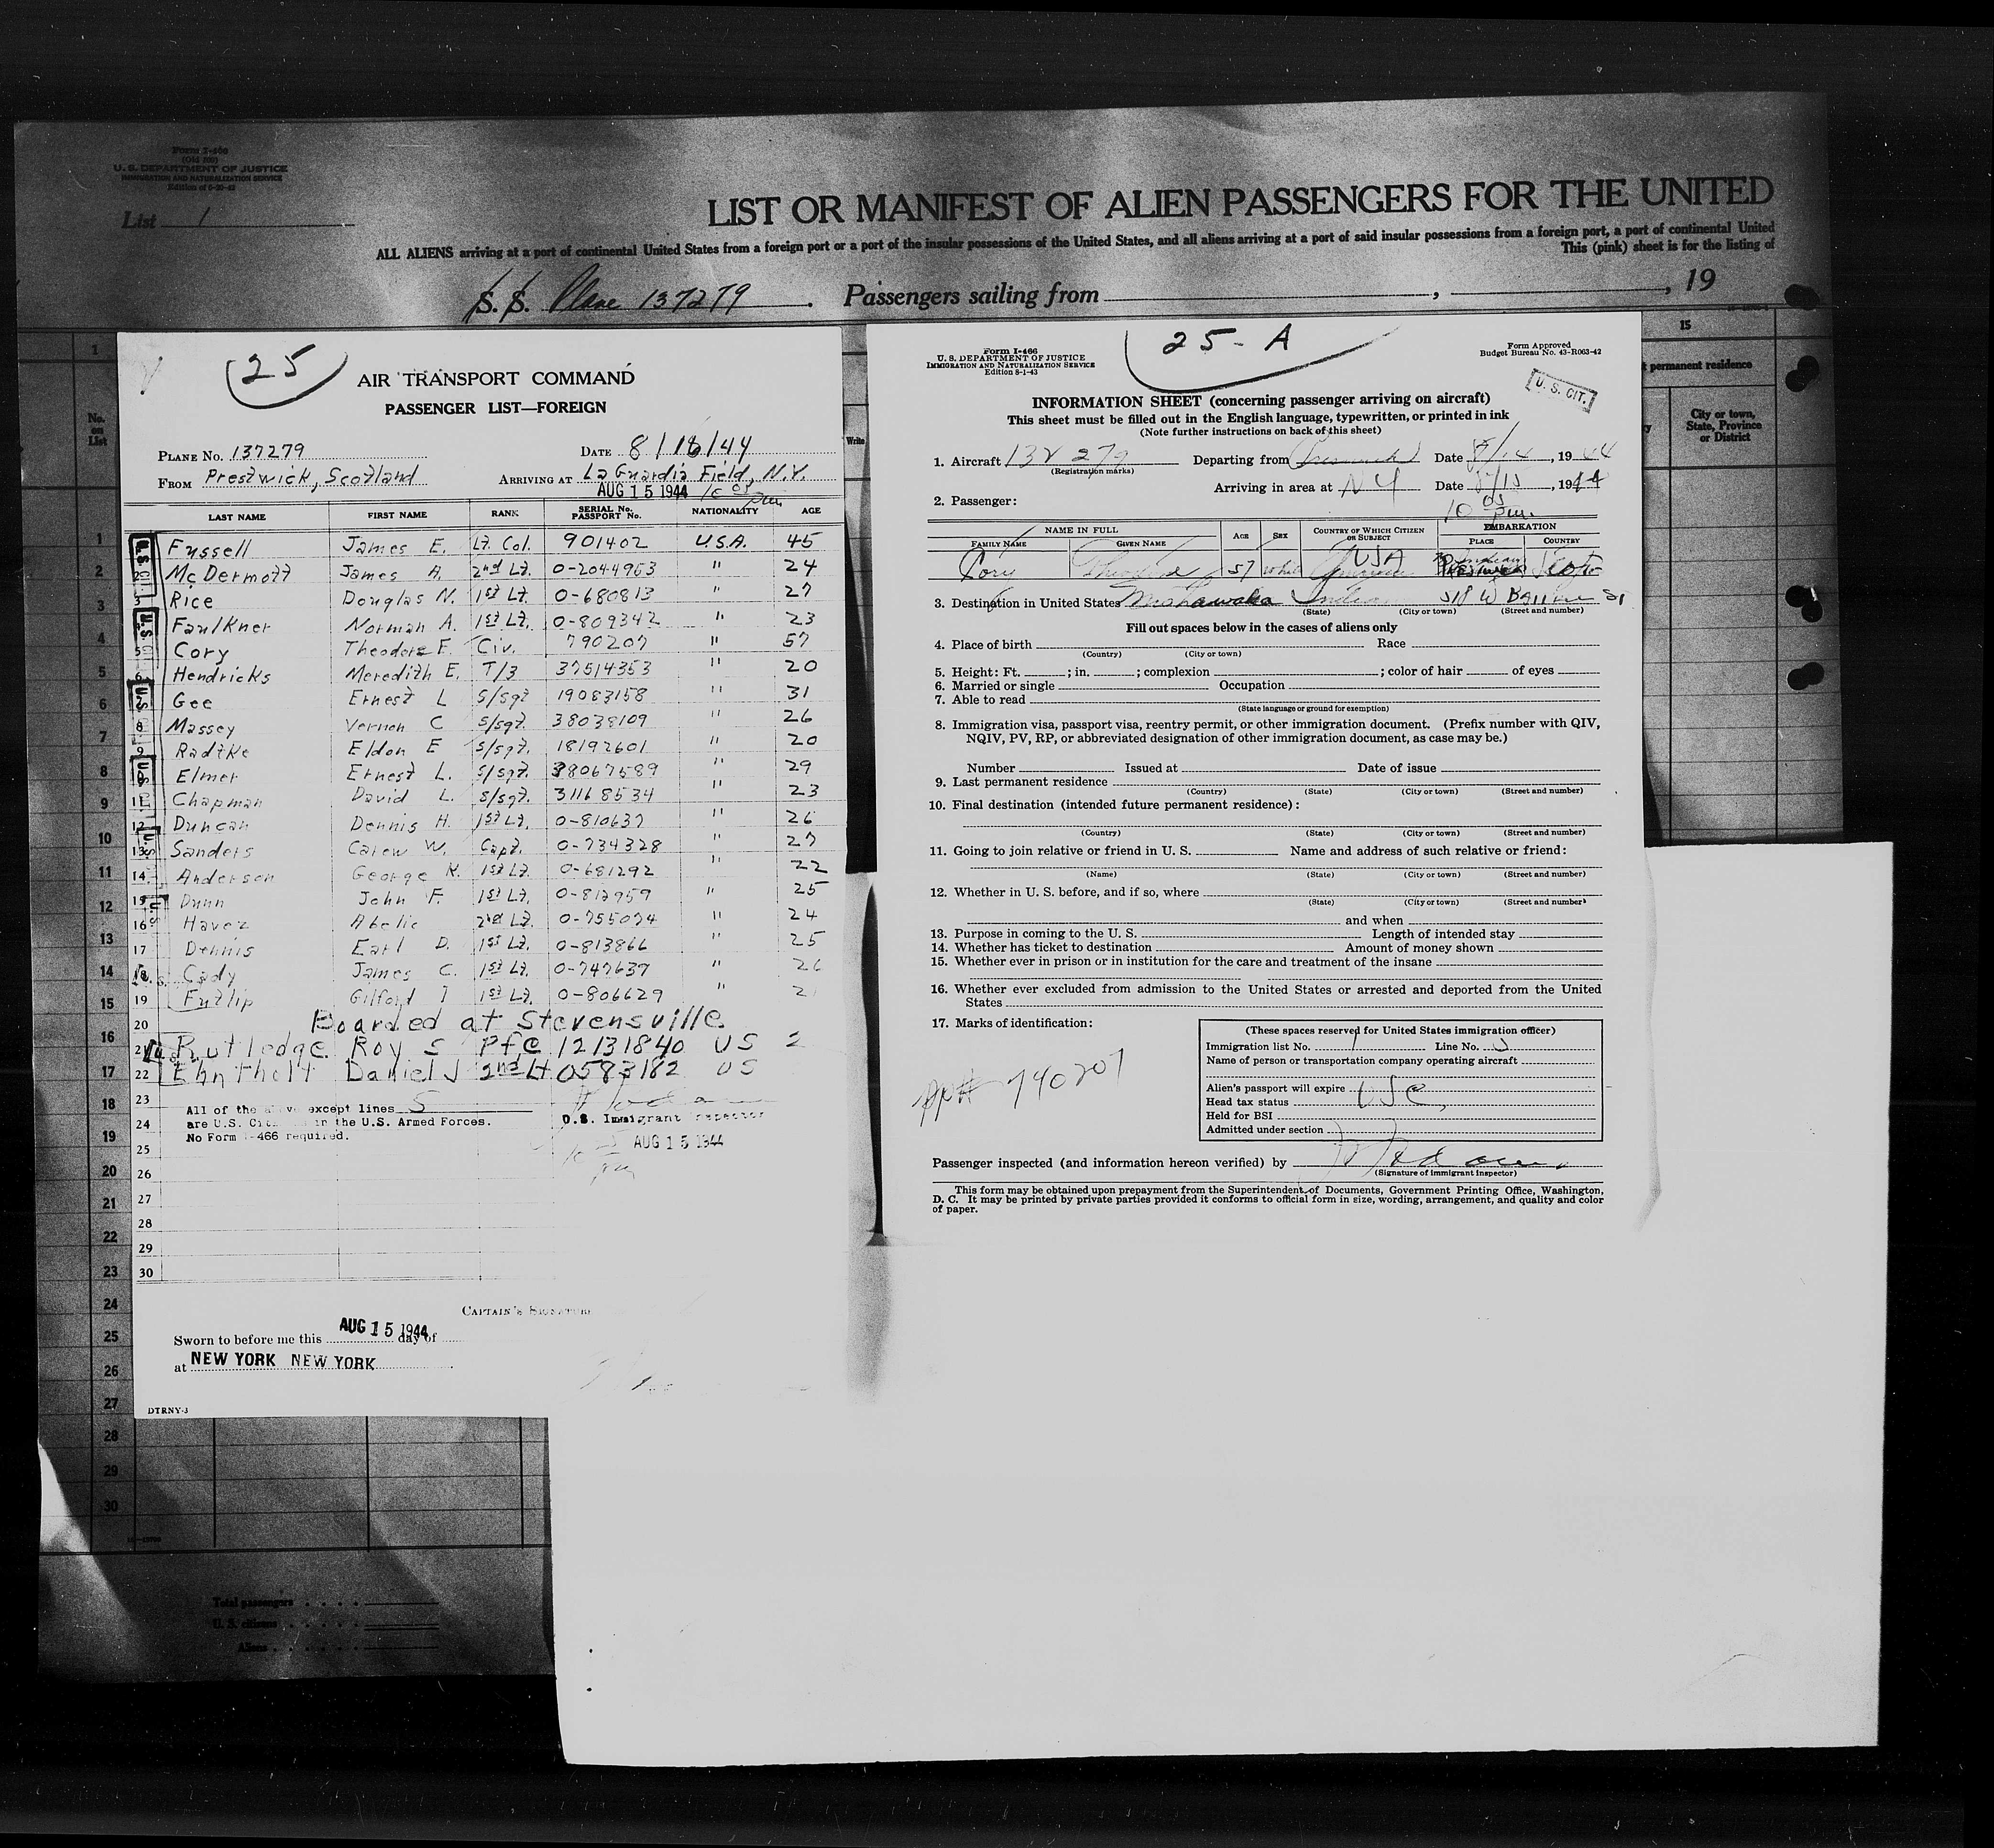 Form I-466
(Old 500)
U. S. DEPARTMENT OF JUSTICE
IMMIGRATION AND NATURALIZATION SERVICE
List 1
LIST OR MANIFEST OF ALIEN PASSENGERS FOR THE UNITED
ALL ALIENS arriving at a port of continental United States from a foreign port or a port of the insular possessions of the United States, and all aliens arriving at a port of said insular possessions from a foreign port, a port of continental United
This (pink) sheet is for the listing of
S. S. Plane 137279 . Passengers sailing from , , 19
25
AIR TRANSPORT COMMAND
PASSENGER LIST—FOREIGN
PLANE No. 137279 DATE 8/18/44
FROM Prestwick, Scotland ARRIVING AT La Guardia Field, N.Y.
AUG 15 1944 10 05 pm
LAST NAME FIRST NAME RANK SERIAL No. PASSPORT No. NATIONALITY AGE
Fussell James E. Lt. Col. 901402 U.S.A. 45
2 McDermott James A. 2nd Lt. 0-2044953 " 24
3 Rice Douglas N. 1st Lt. 0-680813 " 27
Faulkner Norman A. 1st Lt. 0-809342 " 23
5 Cory Theodore F. Civ. 790207 " 57
6 Hendricks Meredith E. T/3 37514353 " 20
Gee Ernest L S/Sgt 19083158 " 31
8 Massey Vernon C S/Sgt. 38038109 " 26
9 Radtke Eldon E S/Sgt. 18192601 " 20
Elmer Ernest L. S/Sgt. 38067589 " 29
11 Chapman David L. S/Sgt. 31168534 " 23
12 Duncan Dennis H. 1st Lt. 0-810637 " 26
13 Sanders Carew W. Capt. 0-734328 " 27
14 Anderson George K. 1st Lt. 0-681292 " 22
15 Dunn John F. 1st Lt. 0-812959 " 25
16 Havez Abelic 2nd Lt. 0-755074 " 24
17 Dennis Earl D. 1st Lt. 0-813866 " 25
18 Cady James C. 1st Lt. 0-747637 " 26
19 Futlip Gilford I 1st Lt. 0-806629 " 2
20 Boarded at Stevensville
21 Rutledge Roy S Pfc 12131840 US 2
22 Ehntholt Daniel J 2nd Lt 0583182 US
23
All of the above except lines 5
24 are U.S. Cit in the U.S. Armed Forces. U.S. Immigrant Inspector
No Form I-466 required. AUG 15 1944
25
26
27
28
29
30
CAPTAIN'S SIGNATURE
Sworn to before me this AUG 15 1944 day of
at NEW YORK NEW YORK
DTRNY-3
25-A
Form I-466
U. S. DEPARTMENT OF JUSTICE
IMMIGRATION AND NATURALIZATION SERVICE
Edition 8-1-43
Form Approved
Budget Bureau No. 43-R063-42
U. S. CIT.
INFORMATION SHEET (concerning passenger arriving on aircraft)
This sheet must be filled out in the English language, typewritten, or printed in ink
(Note further instructions on back of this sheet)
1. Aircraft 137279 Departing from Date 8/14, 1944
(Registration marks)
Arriving in area at NY Date 8/15, 1944
2. Passenger: 10 05 pm.
NAME IN FULL AGE SEX COUNTRY OF WHICH CITIZEN OR SUBJECT EMBARKATION
FAMILY NAME GIVEN NAME PLACE COUNTRY
Cory Theodore F 57 White American USA Prestwick Scot
3. Destination in United States Mishawaka Indiana 518 W St
(State) (City or town) (Street and number)
Fill out spaces below in the cases of aliens only
4. Place of birth Race
(Country) (City or town)
5. Height: Ft. ; in. ; complexion ; color of hair of eyes
6. Married or single Occupation
7. Able to read
(State language or ground for exemption)
8. Immigration visa, passport visa, reentry permit, or other immigration document. (Prefix number with QIV,
NQIV, PV, RP, or abbreviated designation of other immigration document, as case may be.)
Number Issued at Date of issue
9. Last permanent residence
(Country) (State) (City or town) (Street and number)
10. Final destination (intended future permanent residence):
(Country) (State) (City or town) (Street and number)
11. Going to join relative or friend in U. S. Name and address of such relative or friend:
(Name) (State) (City or town) (Street and number)
12. Whether in U. S. before, and if so, where
(State) (City or town) (Street and number)
and when
13. Purpose in coming to the U. S. Length of intended stay
14. Whether has ticket to destination Amount of money shown
15. Whether ever in prison or in institution for the care and treatment of the insane
16. Whether ever excluded from admission to the United States or arrested and deported from the United
States
17. Marks of identification:
pp# 790207
(These spaces reserved for United States immigration officer)
Immigration list No. 1 Line No. 5
Name of person or transportation company operating aircraft
Alien's passport will expire
Head tax status USC
Held for BSI
Admitted under section
Passenger inspected (and information hereon verified) by
(Signature of Immigrant Inspector)
This form may be obtained upon prepayment from the Superintendent of Documents, Government Printing Office, Washington,
D. C. It may be printed by private parties provided it conforms to official form in size, wording, arrangement, and quality and color
of paper.
15
permanent residence
City or town,
State, Province
or District
No.
on
List
Write
1
1
2
3
4
5
6
7
8
9
10
11
12
13
14
15
16
17
18
19
20
21
22
23
24
25
26
27
28
29
30
Total passengers
U. S. citizens
Aliens